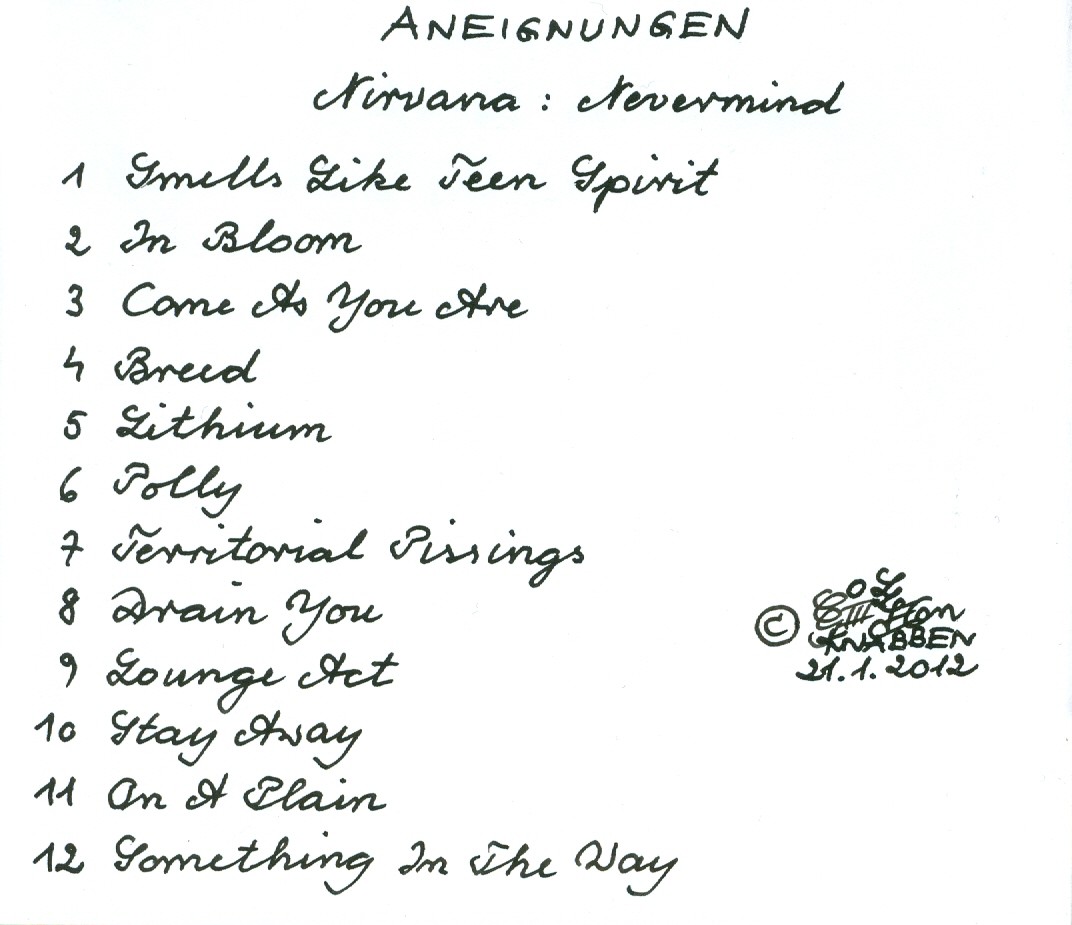 ANEIGNUNGEN
Nirvana : Nevermind
1 Smells Like Teen Spirit
2 In Bloom
3 Come As You Are
4 Breed
5 Lithium
6 Polly
7 Territorial Pissings
8 Drain You
9 Lounge Act
10 Stay Away
11 On A Plain
12 Something In The Way
©
KNABBEN
21.1.2012